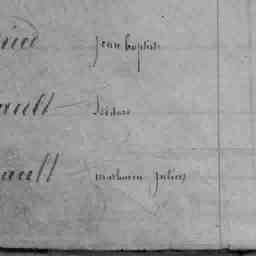 jean baptiste
ault Isidore
ault mathurin julien